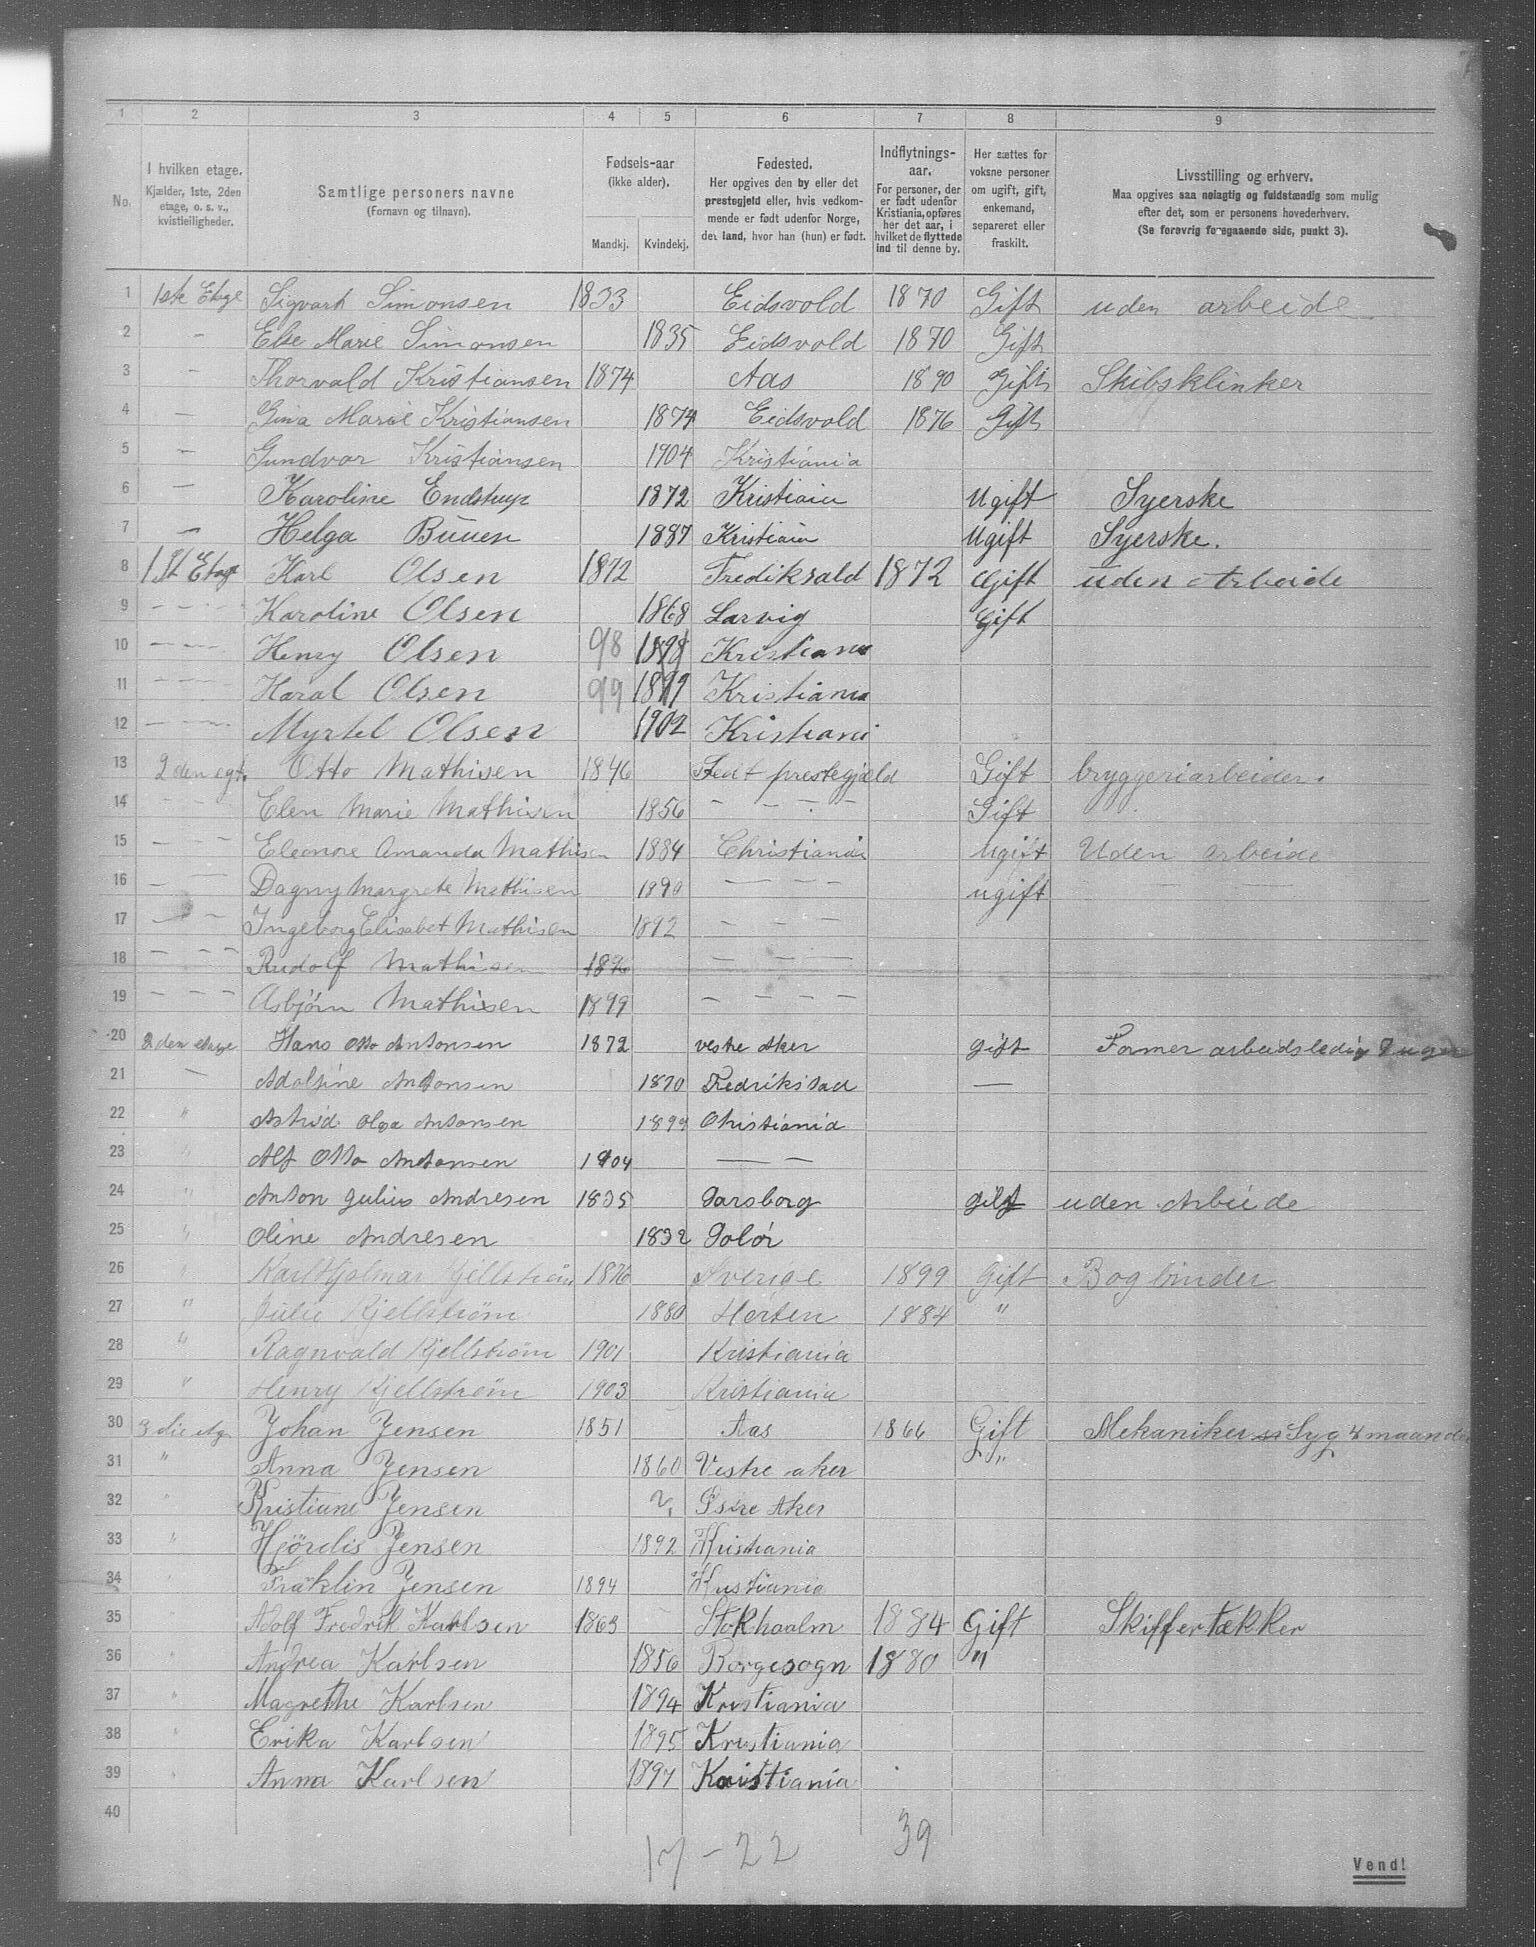 1 2 3 4 5 6 7 8 9
No.
I hvilken etage.
Kjælder, 1ste, 2den
etage, o. s. v.,
kvistleiligheder.
Samtlige personers navne
(Fornavn og tilnavn).
Fødsels-aar
(ikke alder).
Mandkj. Kvindekj.
Fødested.
Her opgives den by eller det
prestegjeld eller, hvis vedkom-
mende er født udenfor Norge,
det land, hvor han (hun) er født.
Indflytnings-
aar.
For personer, der
er født udenfor
Kristiania, opføres
her det aar, i
hvilket de flyttede
ind til denne by.
Her sættes for
voksne personer
om ugift, gift,
enkemand,
separeret eller
fraskilt.
Livsstilling og erhverv.
Maa opgives saa nøiagtig og fuldstændig som mulig
efter det, som er personens hovederhverv.
(Se forøvrig foregaaende side, punkt 3).
1 1ste Etage Sigvart Simonsen 1833 Eidsvold 1870 Gift uden arbeide
2 – Else Marie Simonsen 1835 Eidsvold 1870 Gift
3 – Thorvald Kristiansen 1874 Aas 1890 Gift Skibsklinker
4 – Gina Marie Kristiansen 1874 Eidsvold 1876 Gift
5 – Gundvor Kristiansen 1904 Kristiania
6 – Karoline Endstrup 1872 Kristiania Ugift Syerske
7 – Helga Buuen 1887 Kristiania Ugift Syerske.
8 1st Etage Karl Olsen 1872 Frediksald 1872 Gift uden Arbeide
9 – – – Karoline Olsen 1868 Larvig Gift
10 – – – Henry Olsen 98 1898 Kristiania
11 – – – Haral Olsen 99 1899 Kristiania
12 – – – Myrtel Olsen 1902 Kristiani
13 2den egt. Otto Mathisen 1846 prestegjæld Gift bryggeriarbeider.
14 – – Elen Marie Mathisen 1856 – – – – Gift
15 – – – Eleonore Amanda Mathisen 1884 Christiania Ugift Uden arbeide
16 – – Dagny Margrete Mathisen 1890 – – – ugift – – –
17 – – – Ingeborg Elisabet Mathisen 1892 – – –
18 – – – Rudolf Mathisen – – –
19 – – – Asbjørn Mathisen 1899 – – – –
20 2den etage Hans Otto Antonsen 1872 vestre Aker gift Former arbeidsledig
21 – Adolfine Antonsen 1870 Fredrikstad –
22 " Astrid Olga Antonsen 1899 Christiania
23 " Alf Otto Antonsen 1904 – –
24 " Anton Julius Andresen 1835 gift uden Arbeide
25 " Oline Andresen 1832 Solør
26 " Karl Hjalmar Kjellstrøm 1876 Sverige 1899 Gift Bogbinder
27 " Julie Kjellstrøm 1880 Horten 1884 "
28 " Ragnvald Kjellstrøm 1901 Kristiania
29 " Henry Kjellstrøm 1903 Kristiania
30 3die etg Johan Jensen 1851 Aas 1866 Gift Mekaniker Syg 4 maaneder
31 " Anna Jensen 1860 Vestre aker "
32 " Kristiane Jensen Østre Aker
33 " Hjördis Jensen 1892 Kristiania
34 " Fraklin Jensen 1894 Kristiania
35 " Adolf Fredrik Karlsen 1863 Stokhaalm 1884 Gift Skiffertækker
36 " Andrea Karlsen 1856 Borgesogn 1880 "
37 " Magrethe Karlsen 1894 Kristiania
38 " Erika Karlsen 1895 Kristiania
39 " Anna Karlsen 1897 Kristiania
40
17 – 22 39
Vend!